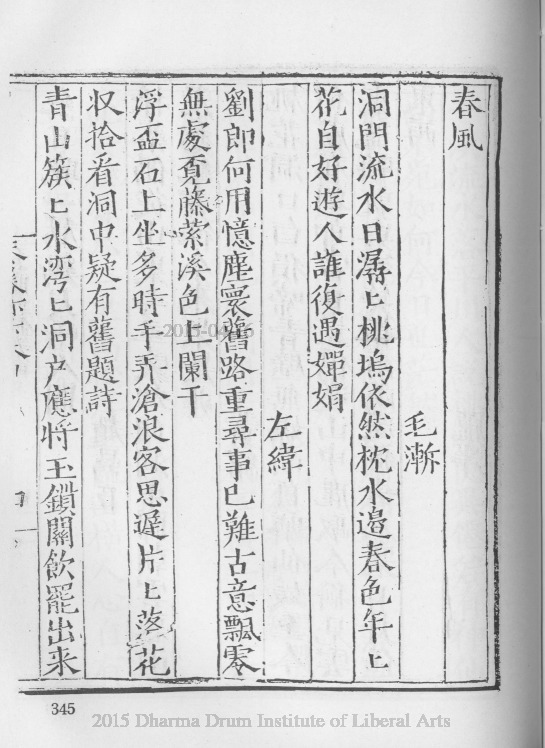 春風
毛漸
洞門流水日潺〻桃塢依然枕水邊春色年〻
花自好遊人誰復遇嬋娟
左緯
劉郎何用憶塵寰舊路重尋事已難古意飄零
無處覔藤蘿溪色上闌干
浮盃石上坐多時手弄滄浪客思遲片〻落花
収拾看洞中疑有舊題詩
青山簇〻水湾〻洞户應將玉鎖關飲罷出来
345
2015 Dharma Drum Institute of Liberal Arts